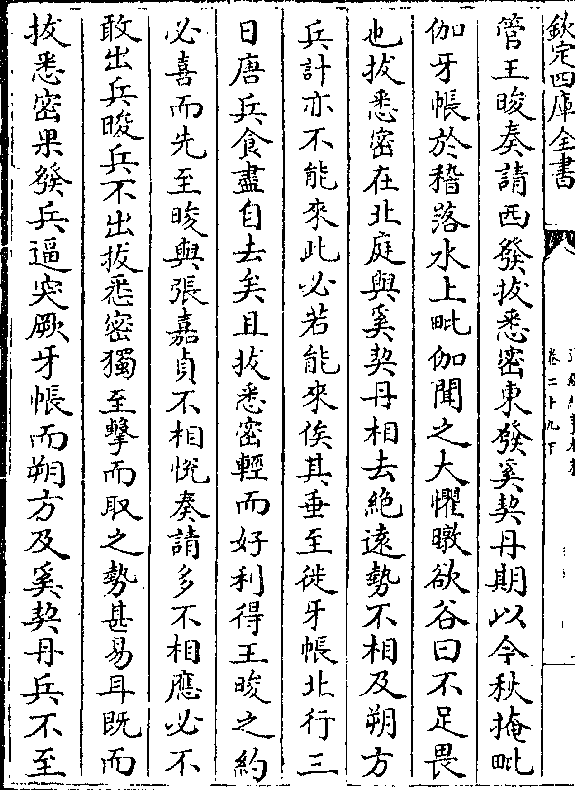 欽定四庫全書
卷二十九下
管王晙奏請西發拔悉密東發奚契丹期以今秋掩毗
伽牙帳於稽落水上毗伽聞之大懼暾欲谷曰不足畏
也拔悉密在北庭與奚契丹相去絶逺勢不相及朔方
兵計亦不能來此必若能來俟其垂至徙牙帳北行三
日唐兵食盡自去矣且拔悉密輕而好利得王晙之約
必喜而先至晙與張嘉貞不相悅奏請多不相應必不
敢出兵晙兵不出拔悉密獨至擊而取之勢甚易耳既而
拔悉密果發兵逼突厥牙帳而朔方及奚契丹兵不至